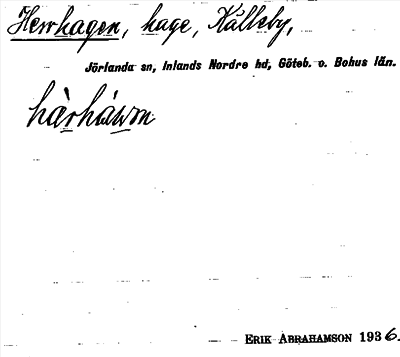 Herrhagen, hage, Källeby,
Jörlanda sn, Inlands Nordre hd, Göteb. o. Bohus län.
hàrháwɒn
ERIK ABRAHAMSON 1936.